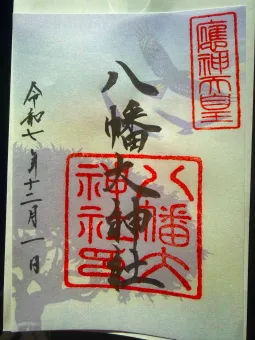 應神天皇
八幡大神社
八幡大神社印
令和七年十二月一日